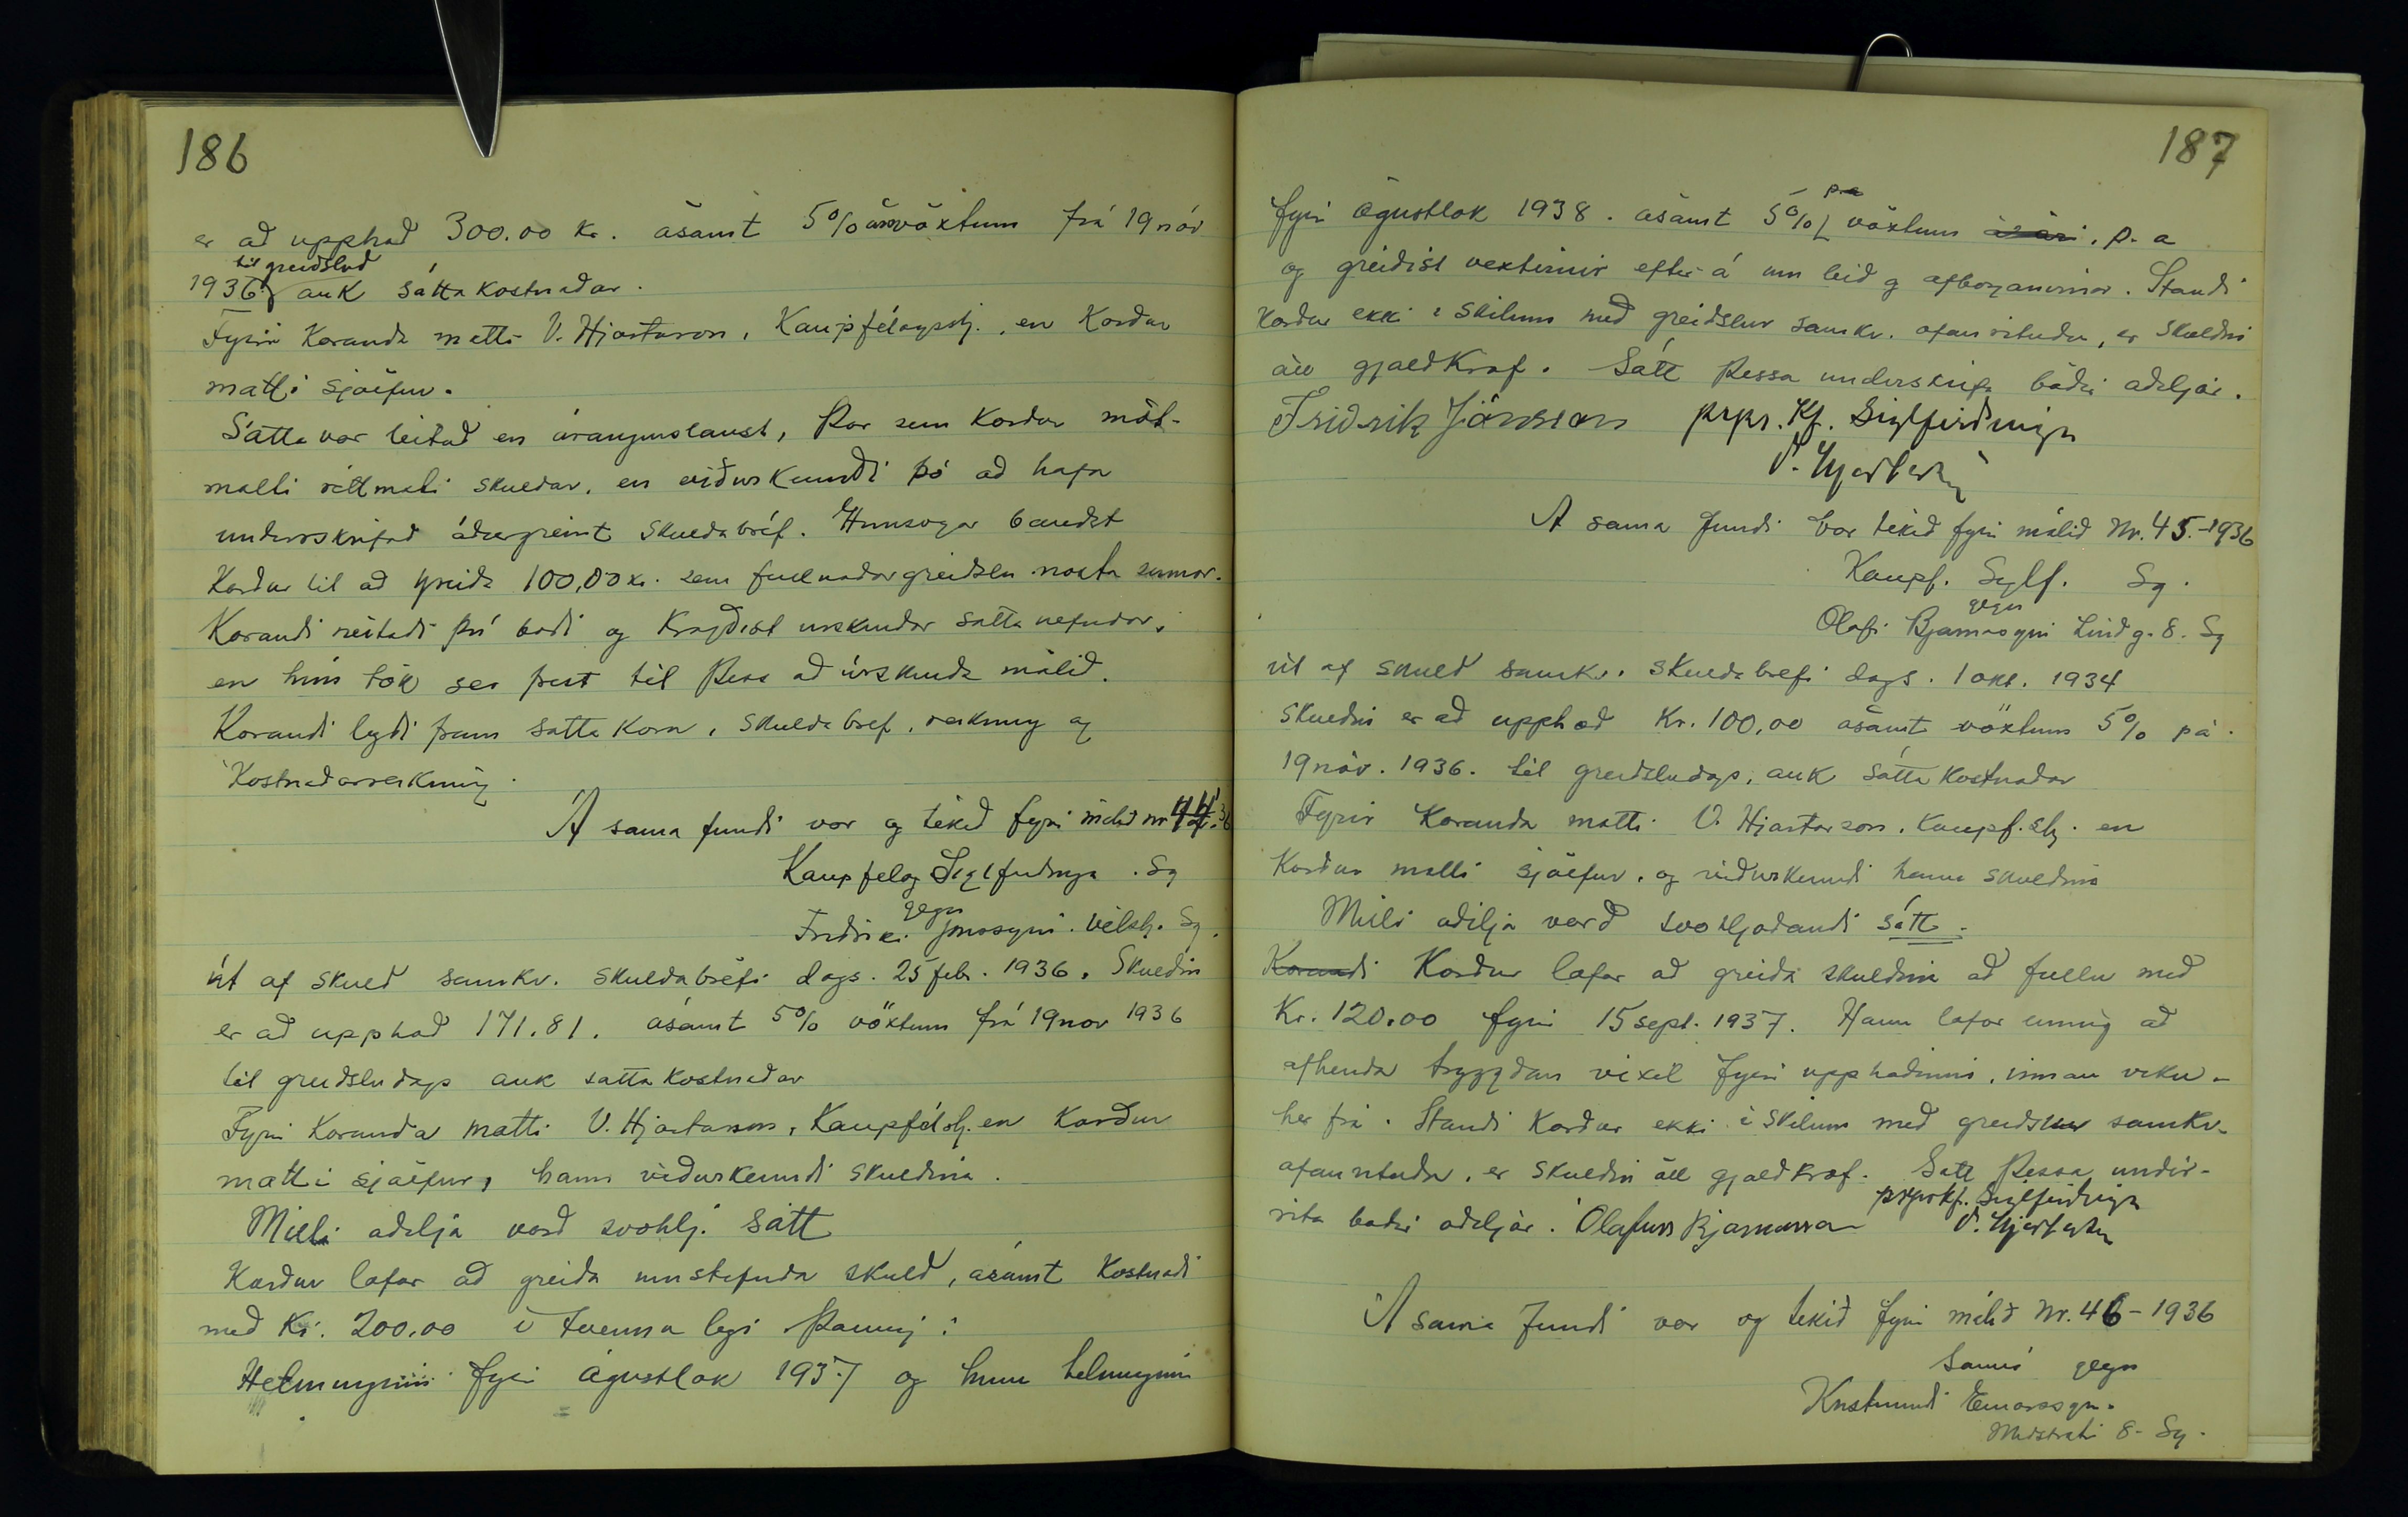 186
er að upphæð 300.00 kr. ásamt 5% ársvöxtum frá 19 nóv
til greiðslud
1936. auk sáttakostnaðar.
Fyrir Kæranda mætti V. Hjartarson, Kaupfélagsstj., en Kærður
mætti sjálfur.
Sátta var leitað en árangurslaust, þar sem kærður mót-
mælti réttmæti skuldar, en viðurkenndi þó að hafa
undirskrifað áðurgreint skuldabréf. Hinsvegar bauðst
Kærður til að greiða 100,00 kr. sem fullnaðargreiðslu næsta sumar.
Kærandi neitaði því boði og krafðist úrskurðar sáttanefndar,
en hún tók sér frest til þess að úrskurða málið.
Kærandi lagði fram sáttakæru, skuldabréf, reikning og
Kostnaðarreikning.
Á sama fundi var og tekið fyrir málið nr 44.'36
Kaupfélag Siglfirðinga. Sg
gegn
Friðriki Jónssyni. vélstj. Sg.
út af skuld samkv. skuldabréfi dags. 25 febr. 1936. Skuldin
er að upphæð 171.81. ásamt 5% vöxtum frá 19 nóv 1936
til greiðsludags auk sáttakostnaðar
Fyrir Kæranda mætti V. Hjartarson, Kaupfélstj. en Kærður
mætti sjálfur, hann viðurkenndi skuldina.
Milli aðilja varð svohlj. sátt
Kærður lofar að greiða umstefnda skuld, ásamt kostnaði
með Kr. 200.00 í tvennu lagi þannig:
Helminginn fyrir ágústlok 1937 og hinn helminginn
187
fyrir ágústlok 1938. ásamt 5% vöxtum p. a
og greiðist vextirnir eftir á um leið og afborganirnar. Standi
Kærður ekki í skilum með greiðslur samkv. ofanrituðu, er skuldin
öll gjaldkræf. Sátt þessa undirskrifa báðir aðiljar.
Friðrik Jónsson prpr. Kf. Siglfirðinga
V. Hjartarson
Á sama fundi var tekið fyrir málið Nr. 45.-1936
Kaupf. Sglf. Sg.
gegn
Ólafi Bjarnasyni Lindg. 8. Sg
út af skuld samkv. skuldabréfi dags. 1 okt. 1934
skuldin er að upphæð Kr. 100,00 ásamt vöxtum 5% frá
19 nóv. 1936. til greiðsludags, auk sáttakostnaðar
Fyrir Kæranda mætti V. Hjartarson. Kaupf.stj. en
Kærður mætti sjálfur, og viðurkenndi hann skuldina
Milli aðilja varð svohljóðandi sátt.
Kærandi Kærður lofar að greiða skuldina að fullu með
Kr. 120.00 fyrir 15 sept. 1937. Hann lofar einnig að
afhenda tryggðan víxil fyrir upphæðinni, innan viku
hér frá. Standi Kærður ekki í skilum með greiðslur samkv.
ofanrituðu, er skuldin öll gjaldkræf. Sátt þessa undir-
rita báðir aðiljar. Ólafur Bjarnason
prpr Kf. Siglfirðinga
V. Hjartarson
Á sama fundi var og tekið fyrir málið Nr. 46-1936
Sami gegn
Kristmundi Einarssyn.
Miðstræti 8- Sg.